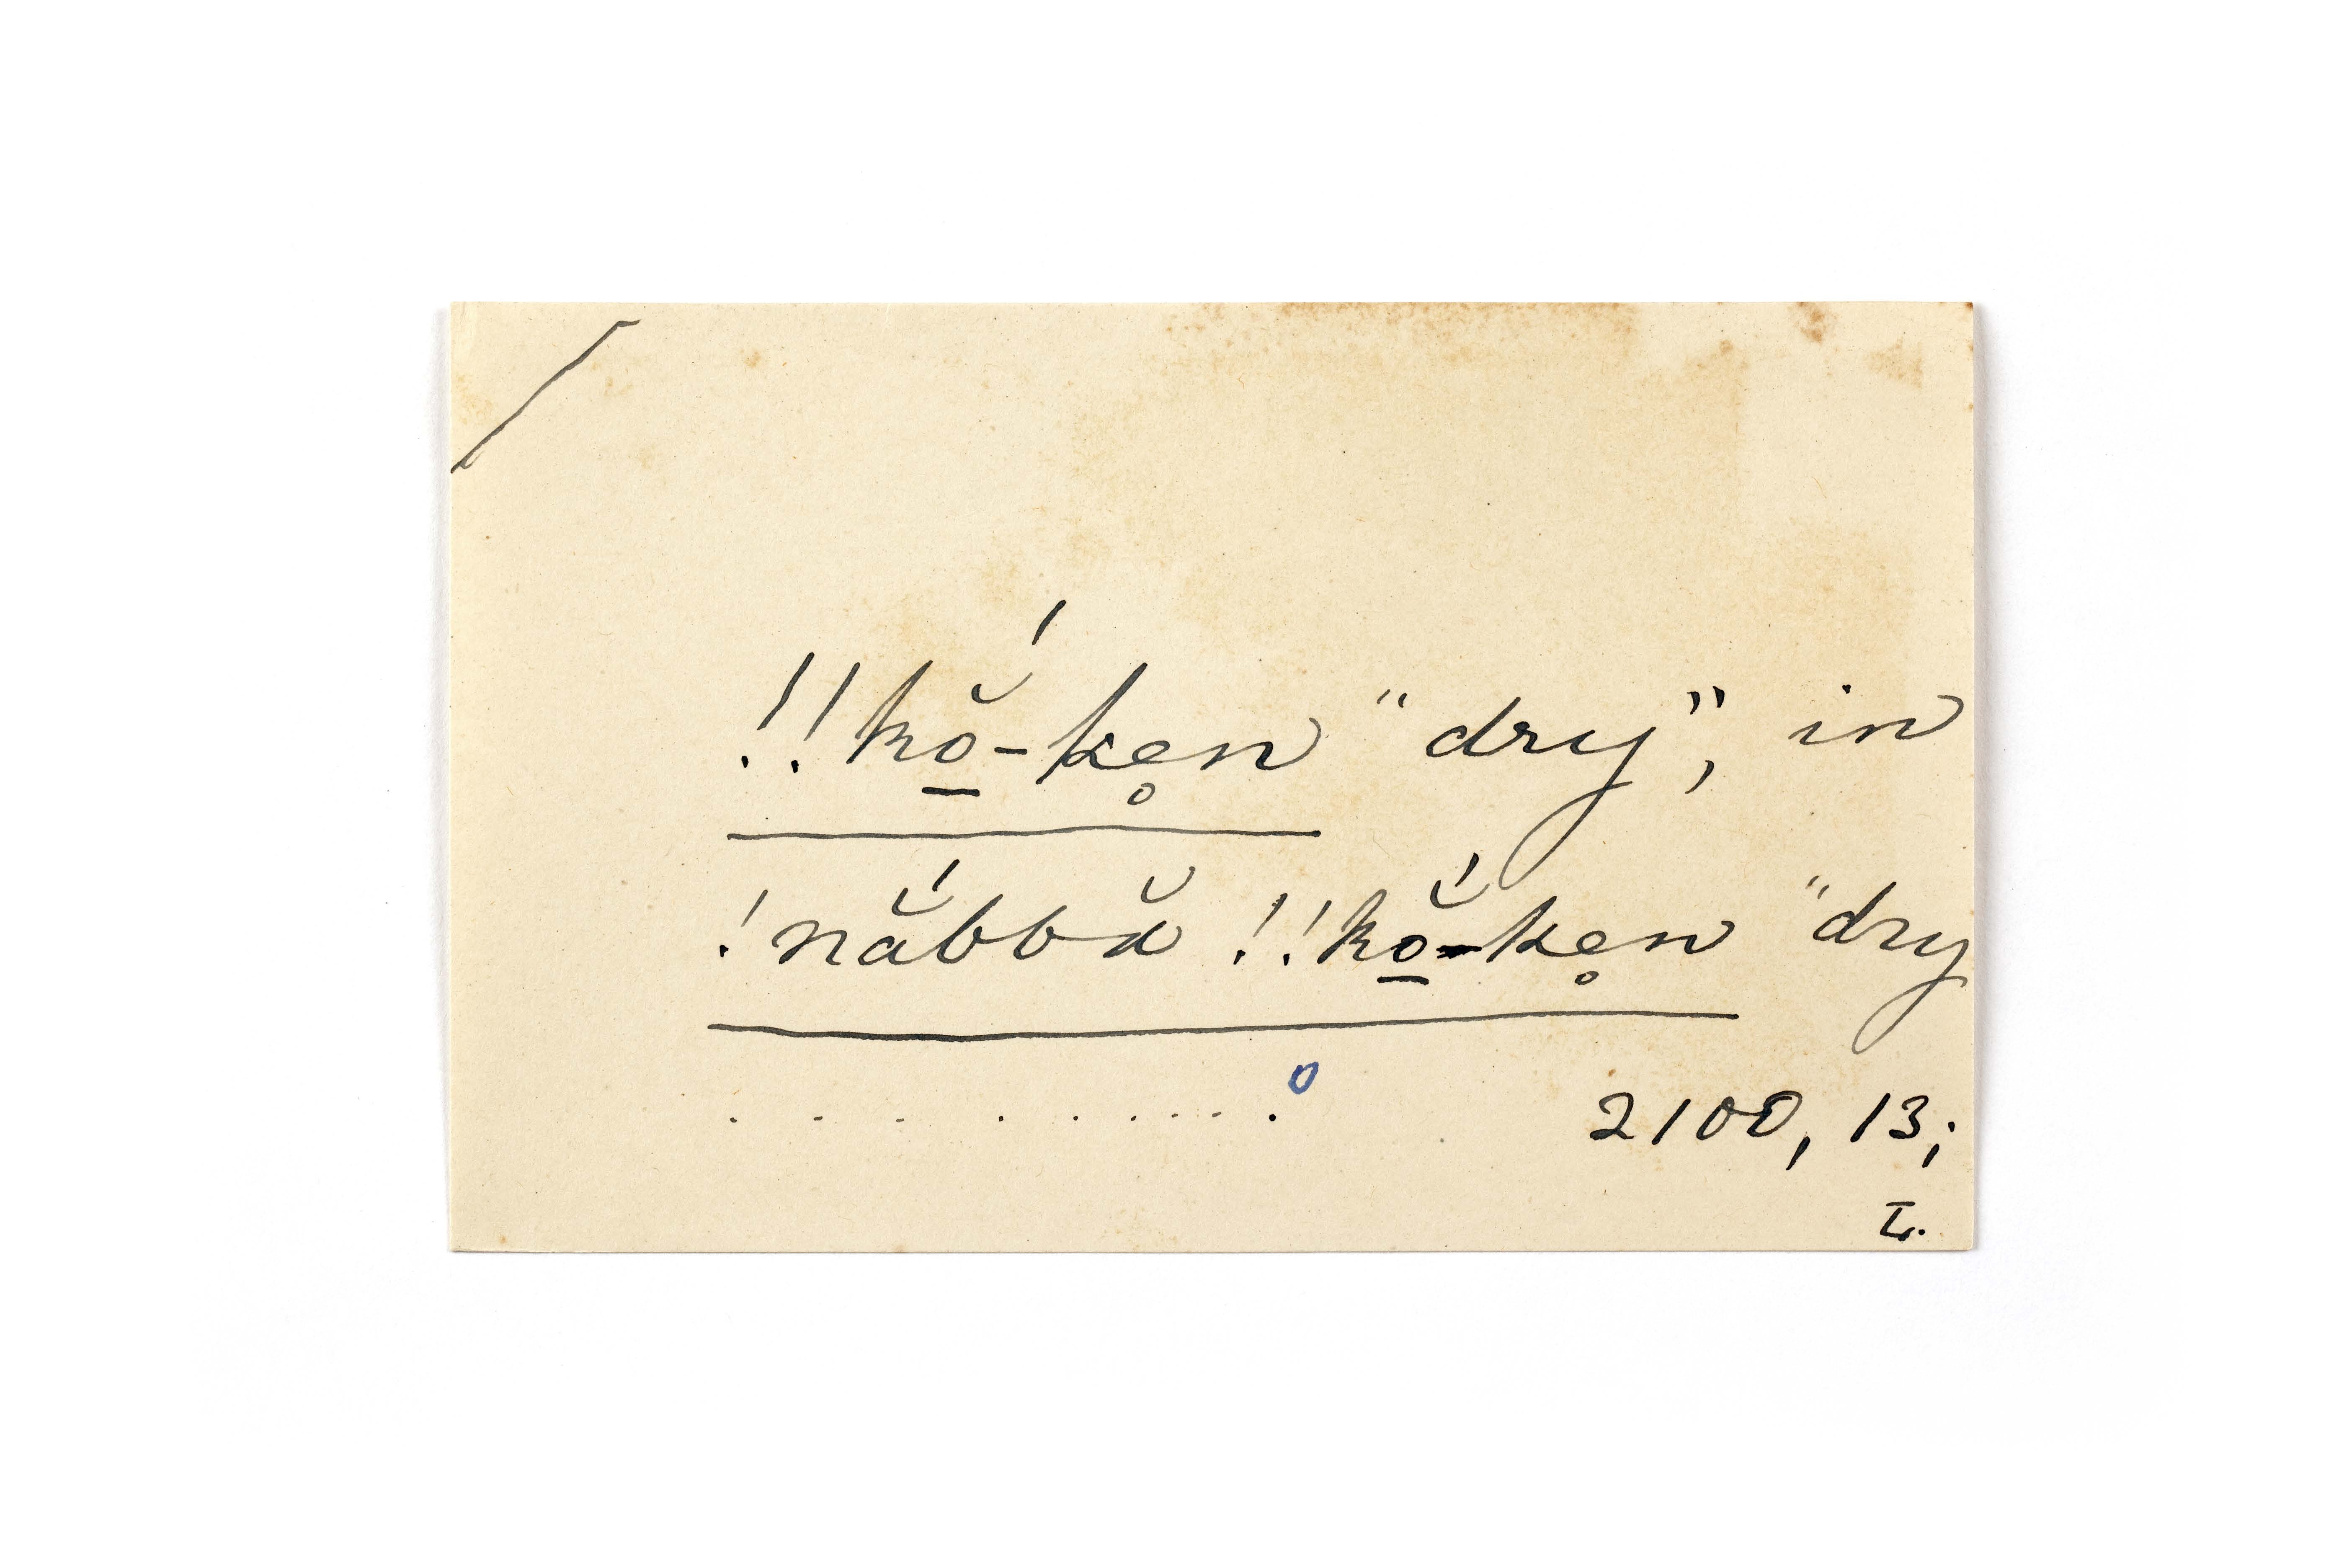 !!kŏ̱́-ke̥n "dry", in
!nắbbă !!kŏ̱́-ke̥n "dry
. . . . . . . . . o 2100, 13;
L.